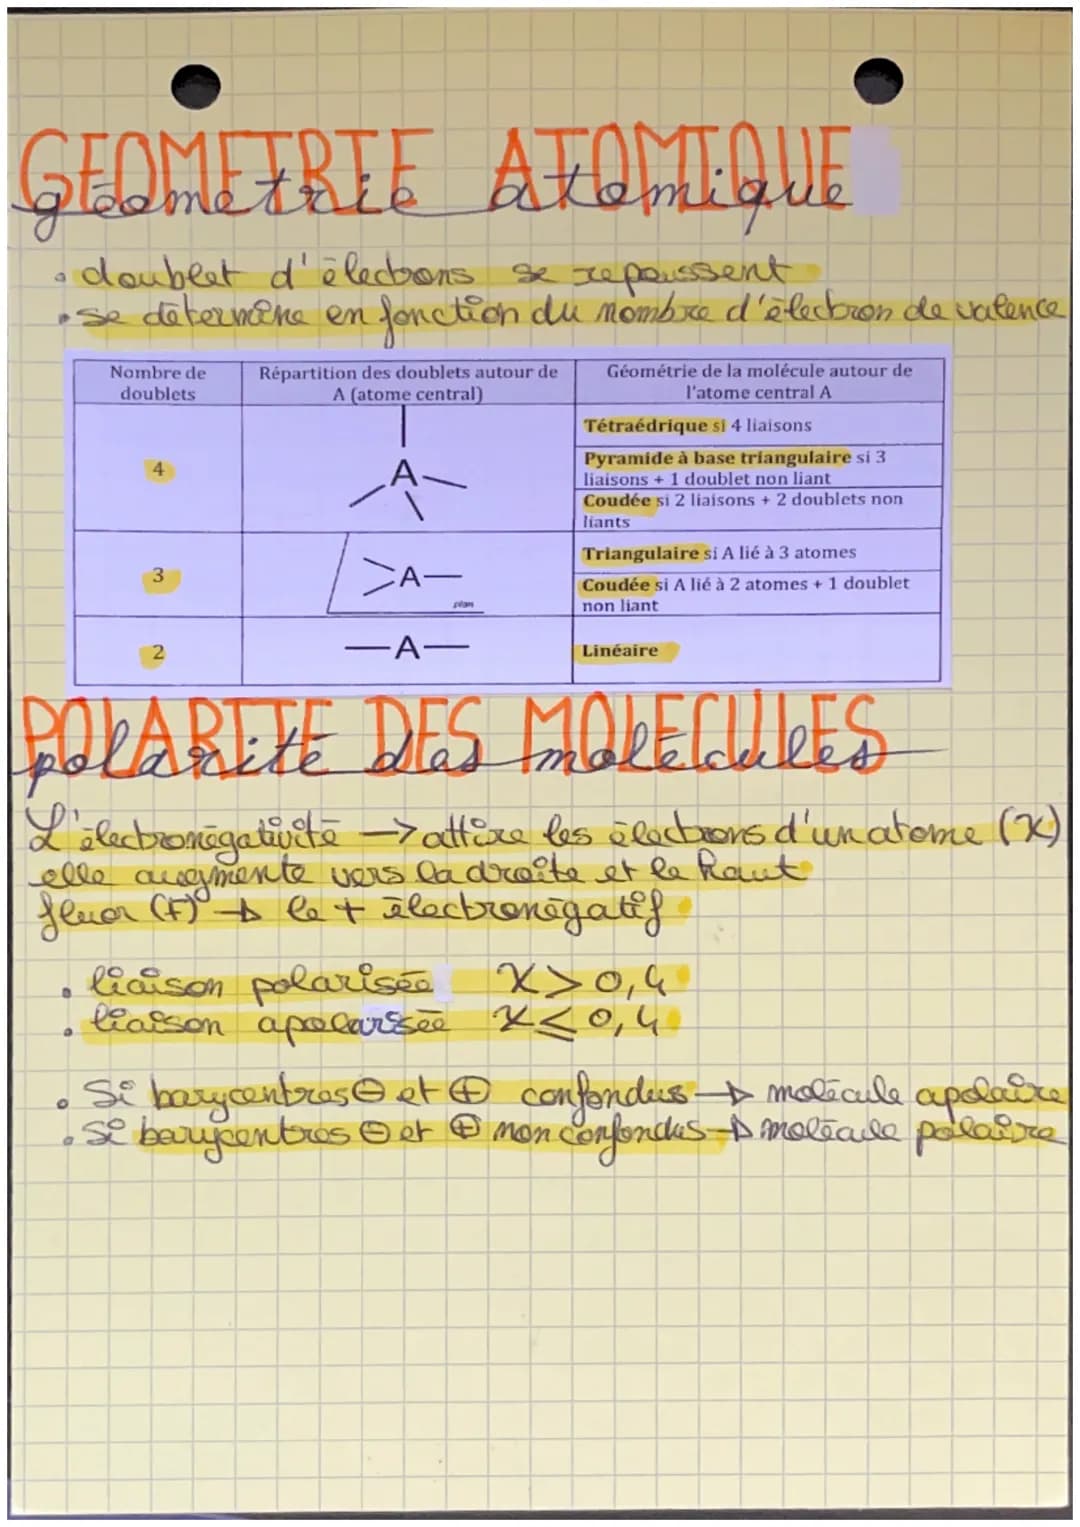 GEOMETRIE ATOMIQUE
géometrie atomique
• doublet d'électrons se repoussent
• se détermine en fonction du nombre d'électron de valence
Nombre de doublets
Répartition des doublets autour de A (atome central)
Géométrie de la molécule autour de l'atome central A
4
A
Tétraédrique si 4 liaisons
Pyramide à base triangulaire si 3
liaisons + 1 doublet non liant
Coudée si 2 liaisons + 2 doublets non
liants
3
A
plan
Triangulaire si A lié à 3 atomes
Coudée si A lié à 2 atomes + 1 doublet
non liant
2
A
Linéaire
POLARITE DES MOLECULES
polarité des molécules
L'électronégativité → attire les électrons d'un atome (χ)
elle augmente vers la droite et le haut
fluor (F) → le + électronégatif
• liaison polarisée χ > 0,4
• liaison apolarisée χ ≤ 0,4
• Si barycentres ⊖ et ⊕ confondus → molécule apolaire
• Si barycentres ⊖ et ⊕ non confondus → molécule polaire